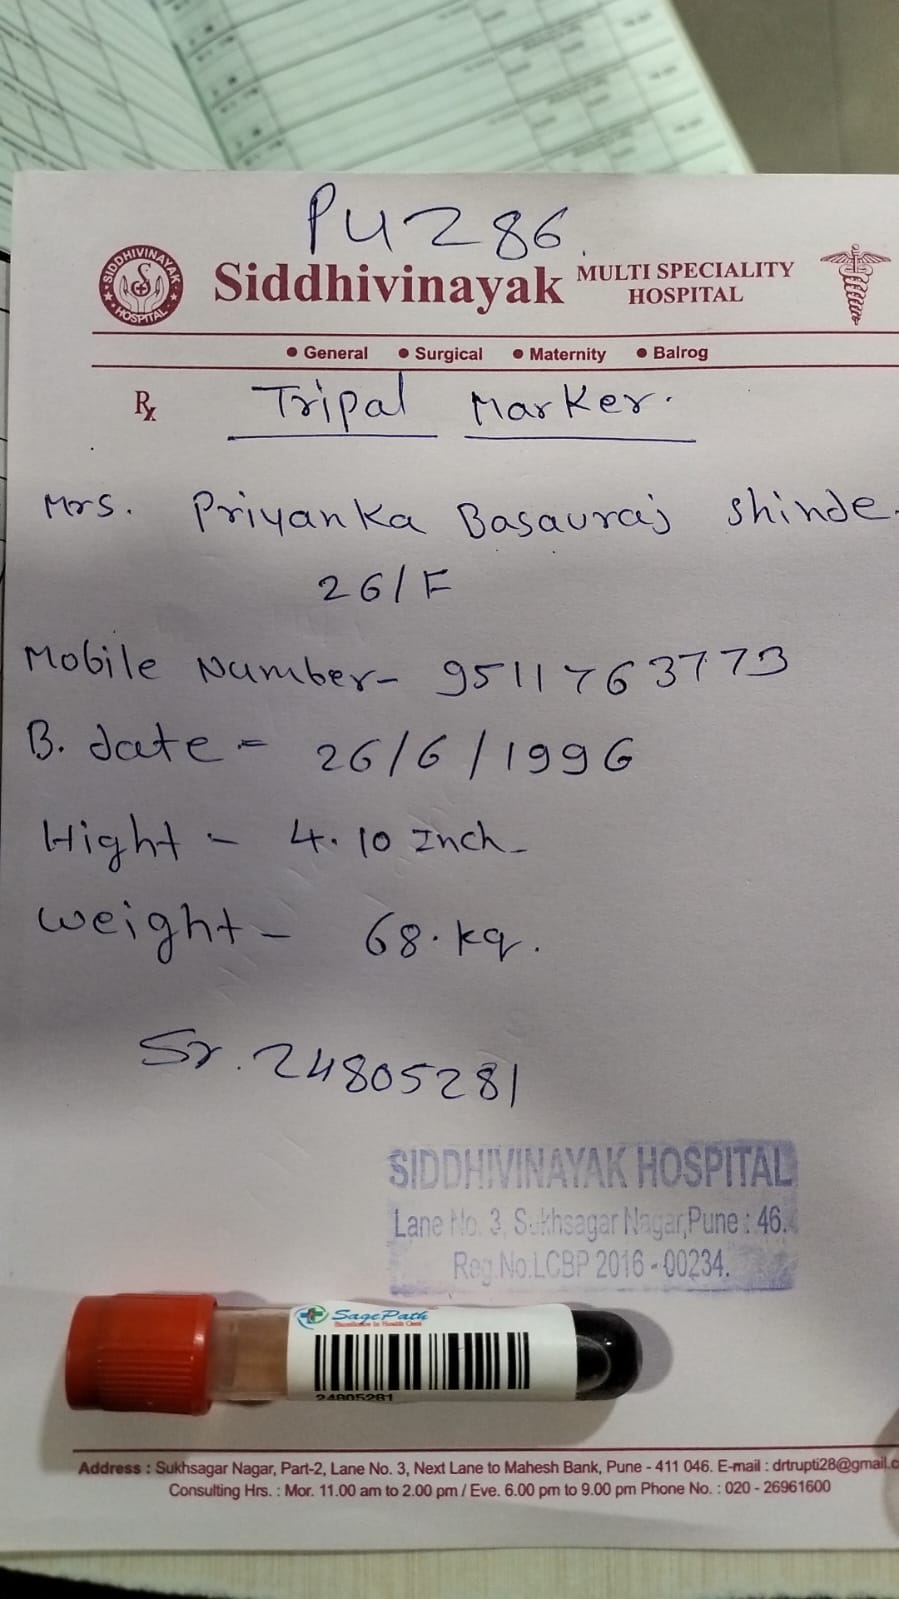 PU286.
SIDDHIVINAYAK
HOSPITAL
Siddhivinayak MULTI SPECIALITY HOSPITAL
• General • Surgical • Maternity • Balrog
Rx Tripal Marker.
Mrs. Priyanka Basauraj Shinde.
26/F
Mobile Number- 9511763773
B. date = 26/6/1996
Hight - 4.10 Inch-
weight - 68.kg.
Sr. 24805281
SIDDHIVINAYAK HOSPITAL
Lane No. 3, Sukhsagar Nagar, Pune : 46.
Reg.No.LCBP 2016 - 00234.
SagePath
Excellence in Health Care
24805281
Address : Sukhsagar Nagar, Part-2, Lane No. 3, Next Lane to Mahesh Bank, Pune - 411 046. E-mail : drtrupti28@gmail.c
Consulting Hrs. : Mor. 11.00 am to 2.00 pm / Eve. 6.00 pm to 9.00 pm Phone No. : 020 - 26961600